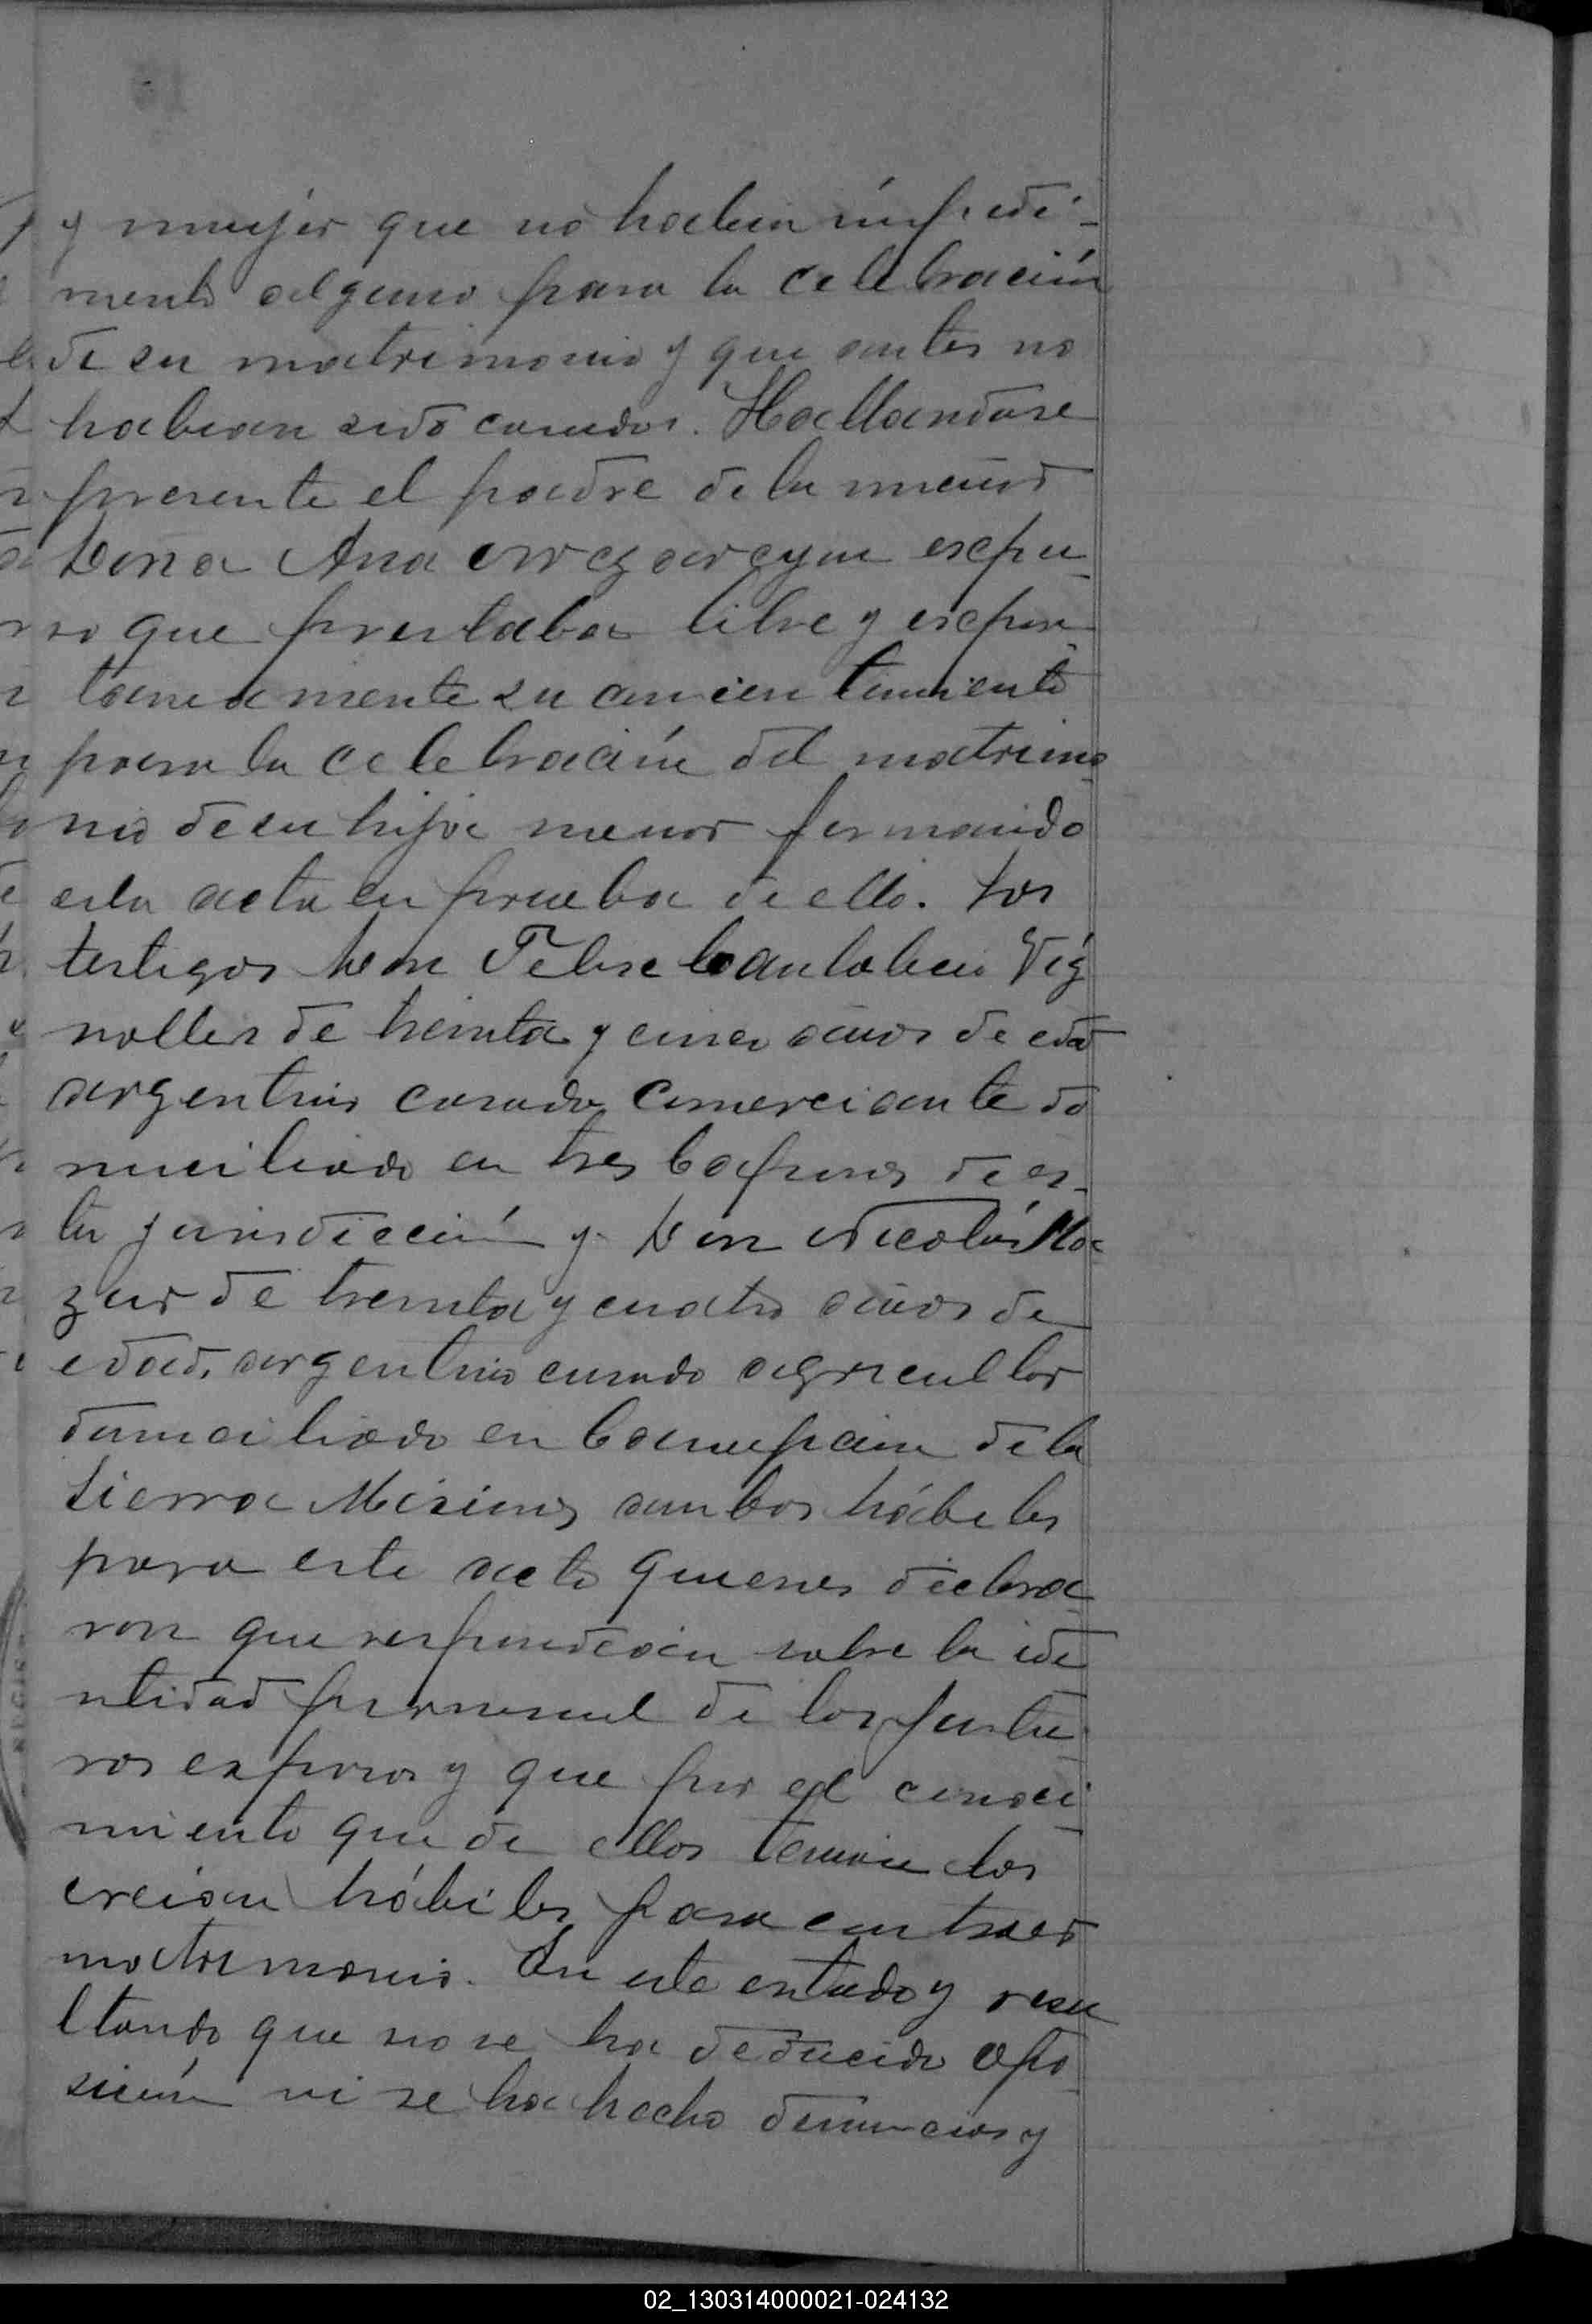 y mujer que no habia impedi-
mento alguno para la celebración
de su matrimonio y que antes no
habian sido casados. Hallandose
presente el padre de la menor
Dona Ana expu-
so que prestaba libre y espon
taneamente su consentimiento
para la celebración del matrimo
nio de su hija menor firmando
esta acta en prueba de ello. Los
testigos Don Vig
nolles de treinta y cinco años de edad
argentino casado comerciante do
miciliado en tres Capones de es-
ta jurisdicción y Don Nicolás
de treinta y cuatro años de
edad, argentino casado agricultor
domiciliado en de la
Sierra Misiones ambos hábiles
para este acto quienes declara
ron que respondian sobre la ide
ntidad personal de los futu
ros esposos y que por el conoci
miento que de ellos tenian los
creian hábiles para contraer
matrimonio. En este estado y resu
ltando que no se ha deducido opo
sición ni se ha hecho denuncias y
02_130314000021-024132